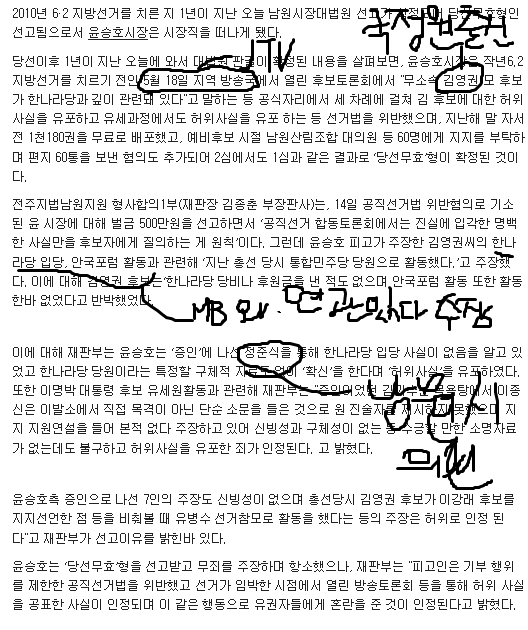 2010년 6·2 지방선거를 치른 지 1년이 지난 오늘 남원시장대법원 선고가 확정되어 당선무효형인
선고됨으로서 윤승호시장은 시장직을 떠나게 됐다.
JTV
국정원출신
당선이후 1년이 지난 오늘에 와서 대법원 판결이 확정된 내용을 살펴보면, 윤승호시장은 작년6,2
지방선거를 치르기 전인 5월 18일 지역 방송국에서 열린 후보토론회에서 "무소속 김영권 모 후보
가 한나라당과 깊이 관련돼 있다"고 말하는 등 공식자리에서 세 차례에 걸쳐 김 후보에 대한 허위
사실을 유포하고 유세과정에서도 허위사실을 유포 하는 등 선거법을 위반했으며, 지난해 말 자서
전 1천180권을 무료로 배포했고, 예비후보 시절 남원산림조합 대의원 등 60명에게 지지를 부탁하
며 편지 60통을 보낸 혐의도 추가되어 2심에서도 1심과 같은 결과로 '당선무효'형이 확정된 것이
다.
전주지법남원지원 형사합의1부(재판장 김종춘 부장판사)는, 14일 공직선거법 위반혐의로 기소
된 윤 시장에 대해 벌금 500만원을 선고하면서 '공직선거 합동토론회에서는 진실에 입각한 명백
한 사실만을 후보자에게 질의하는 게 원칙'이다. 그런데 윤승호 피고가 주장한 김영권씨의 한나
라당 입당, 안국포럼 활동과 관련해 '지난 총선 당시 통합민주당 당원으로 활동했다.'고 주장했
다. 이에 대해 김영권 후보는'한나라당 당비나 후원금을 낸 적도 없으며, 안국포럼 활동 또한 활동
한바 없었다고 반박했었다.
MB 와. 연관있다 주장
이에 대해 재판부는 윤승호는 '증인'에 나선 정준식을 통해 한나라당 입당 사실이 없음을 알고 있
었고 한나라당 당원이라는 특정할 구체적 자료도 없이 '확신'을 한다며 '허위사실'을 유포하였다.
또한 이명박 대통령 후보 유세원활동과 관련해 재판부는 "증인이었던 목욕탕에서 이종
신은 이발소에서 직접 목격이 아닌 단순 소문을 들은 것으로 원 진술자를 제시하지 못했으며 지
지 지원연설을 들어 본적 없다 주장하고 있어 신빙성과 구체성이 없는 등 수긍할 만한 소명자료
가 없는데도 불구하고 허위사실을 유포한 죄가 인정된다. 고 밝혔다.
남원시
의원
윤승호측 증인으로 나선 7인의 주장도 신빙성이 없으며 총선당시 김영권 후보가 이강래 후보를
지지선언한 점 등을 비춰볼 때 유병수 선거참모로 활동을 했다는 등의 주장은 허위로 인정 된
다"고 재판부가 선고이유를 밝힌바 있다.
윤승호는 '당선무효'형을 선고받고 무죄를 주장하며 항소했으나, 재판부는 "피고인은 기부 행위
를 제한한 공직선거법을 위반했고 선거가 임박한 시점에서 열린 방송토론회 등을 통해 허위 사실
을 공표한 사실이 인정되며 이 같은 행동으로 유권자들에게 혼란을 준 것이 인정된다고 밝혔다.